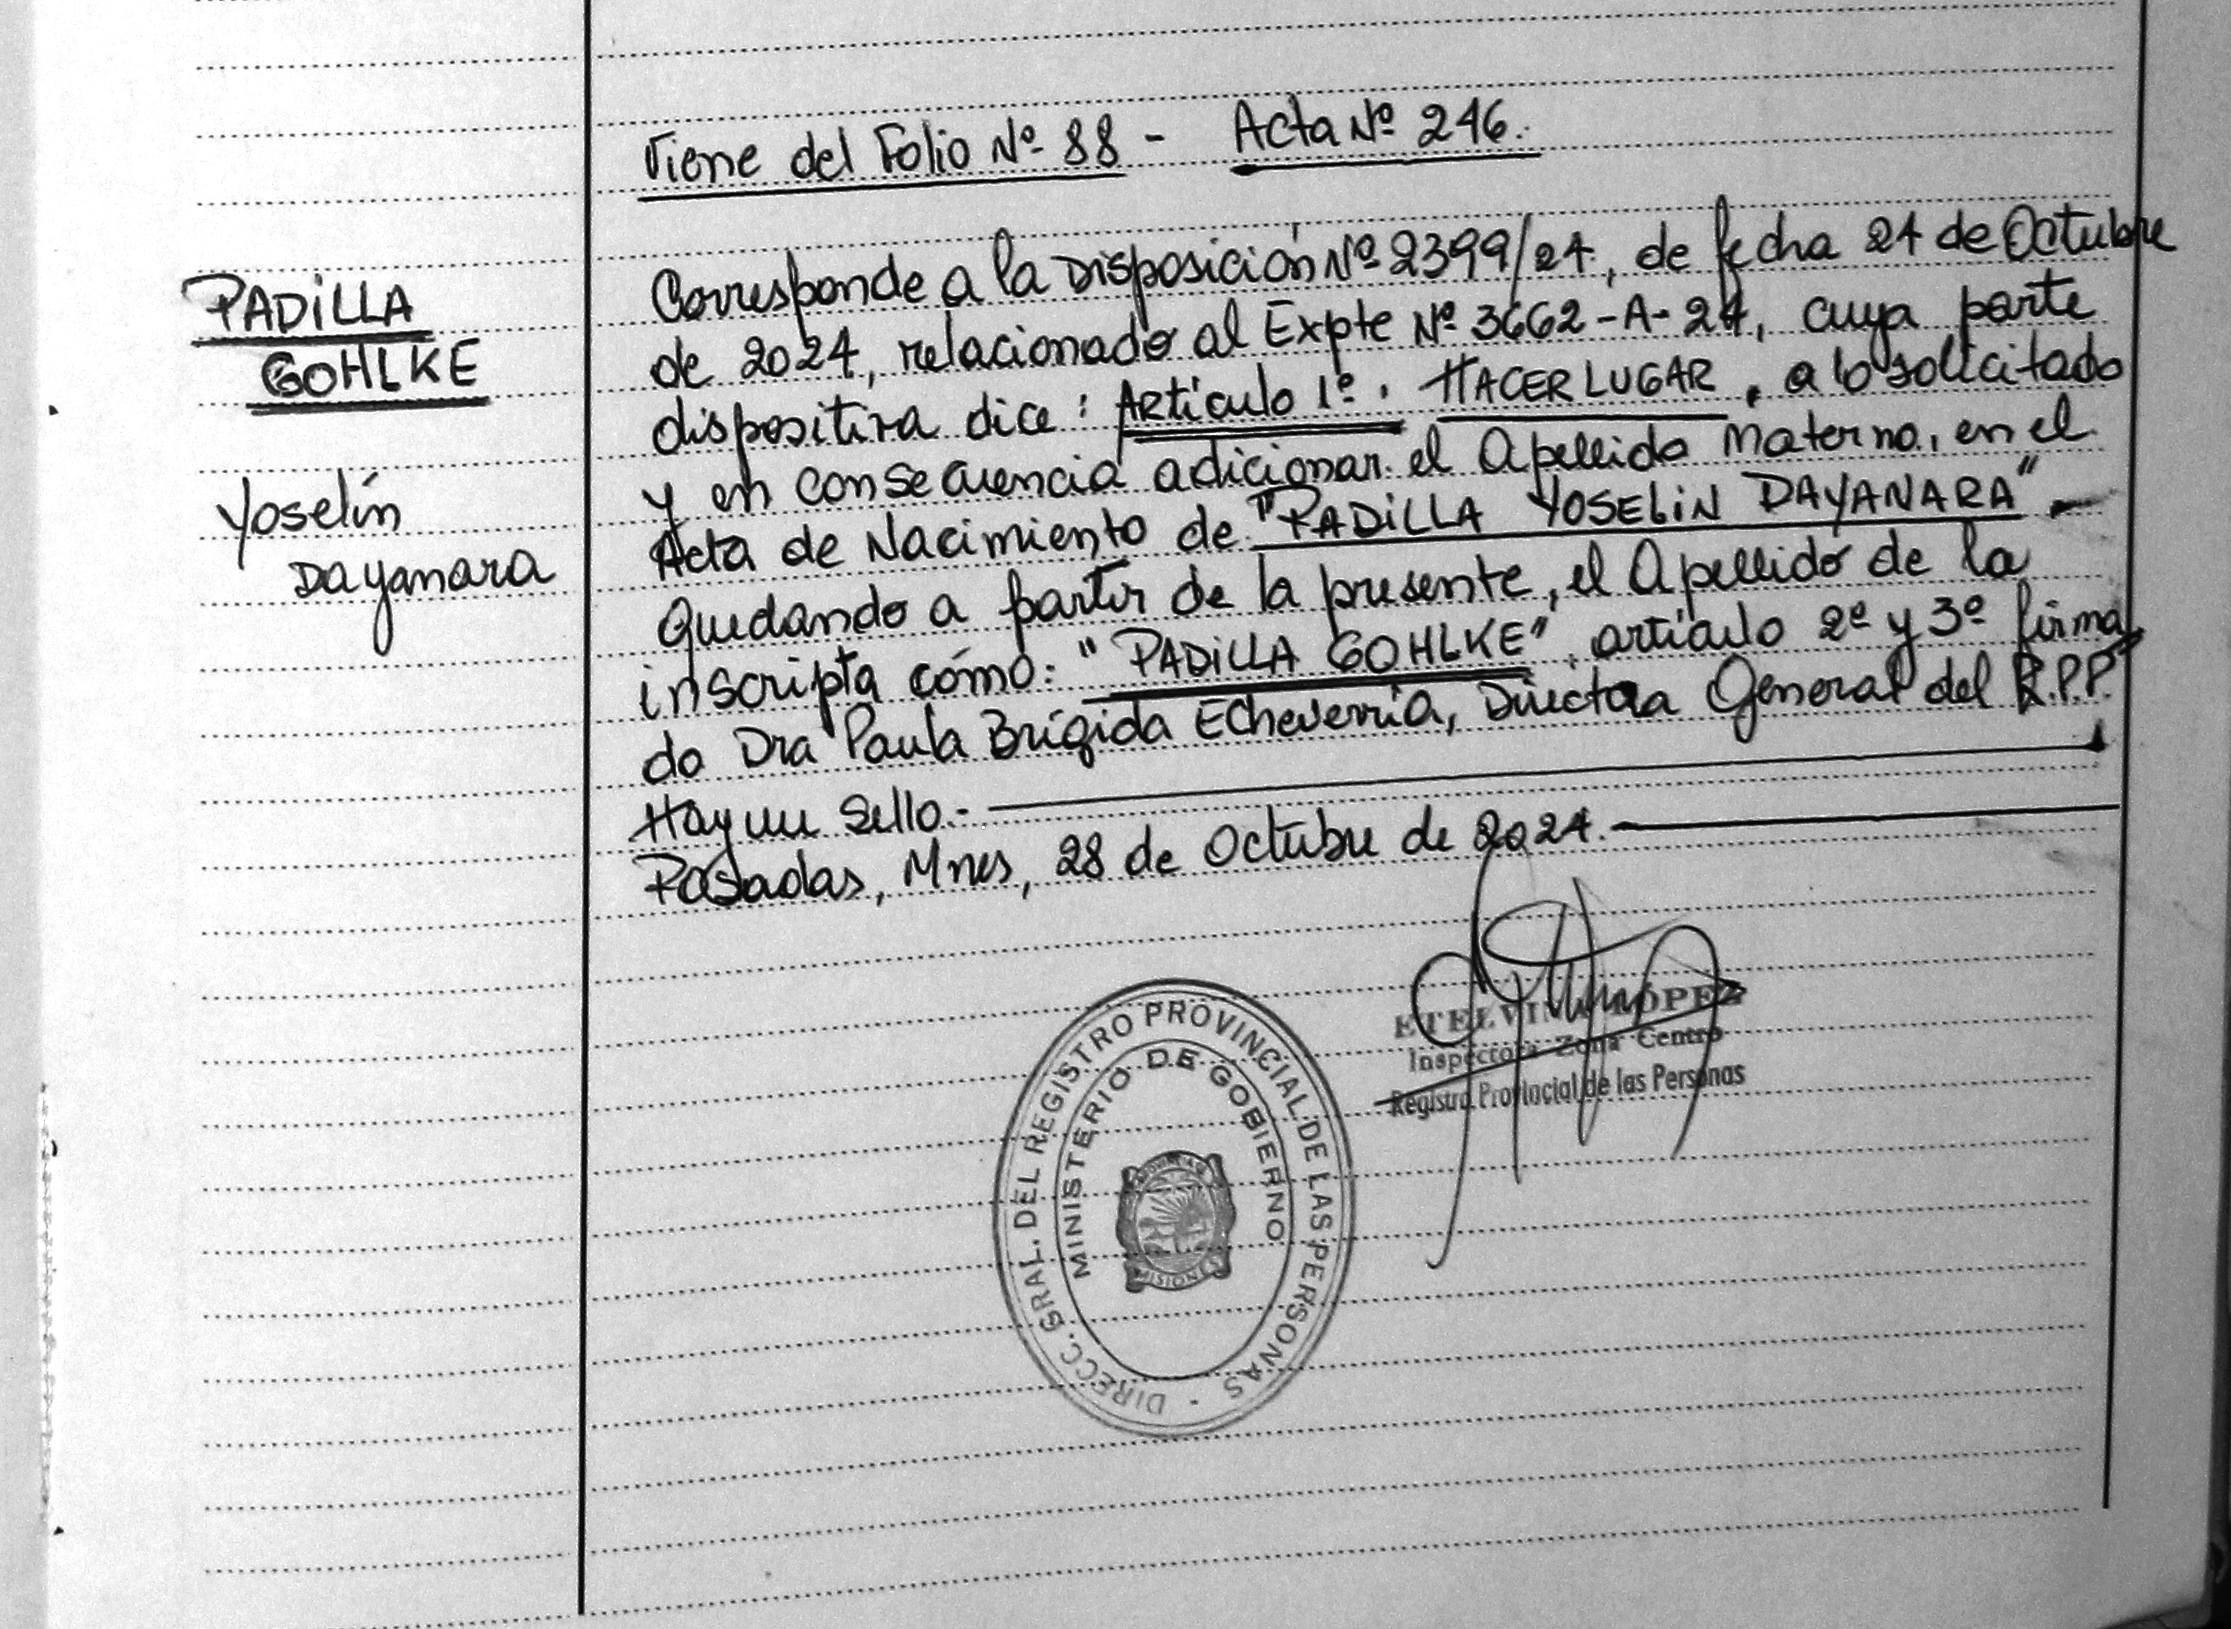 Viene del Folio Nº 88 - Acta Nº 246.
PADILLA
GOHLKE
Yoselín
Dayanara
Corresponde a la Disposición Nº 2399/24, de fecha 24 de Octubre
de 2024, relacionado al Expte Nº 3662-A-24, cuya parte
dispositiva dice: Artículo 1º. HACER LUGAR, a lo solicitado
y en consecuencia adicionar el Apellido Materno, en el
Acta de Nacimiento de "PADILLA YOSELIN DAYANARA"-
Quedando a partir de la presente, el Apellido de la
inscripta cómo: "PADILLA GOHLKE", artículo 2º y 3º firma
do Dra Paula Brígida Echeverría, Directora General del R.P.P.
Hay un Sello.-
Posadas, Mnes, 28 de Octubre de 2024.-
ETELVINA LÓPEZ
Inspectora Zona Centro
Registro Provincial de las Personas
DIRECC. GRAL. DEL REGISTRO PROVINCIAL DE LAS PERSONAS -
MINISTERIO DE GOBIERNO
MISIONES